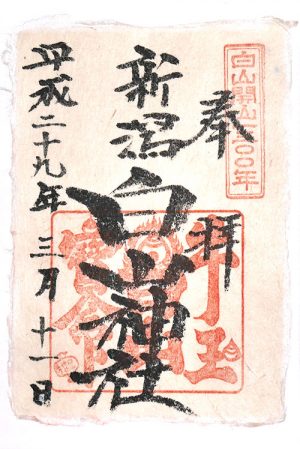 白山開山一三〇〇年
奉拝
新潟白山神社
平成二十九年三月十一日
牛王